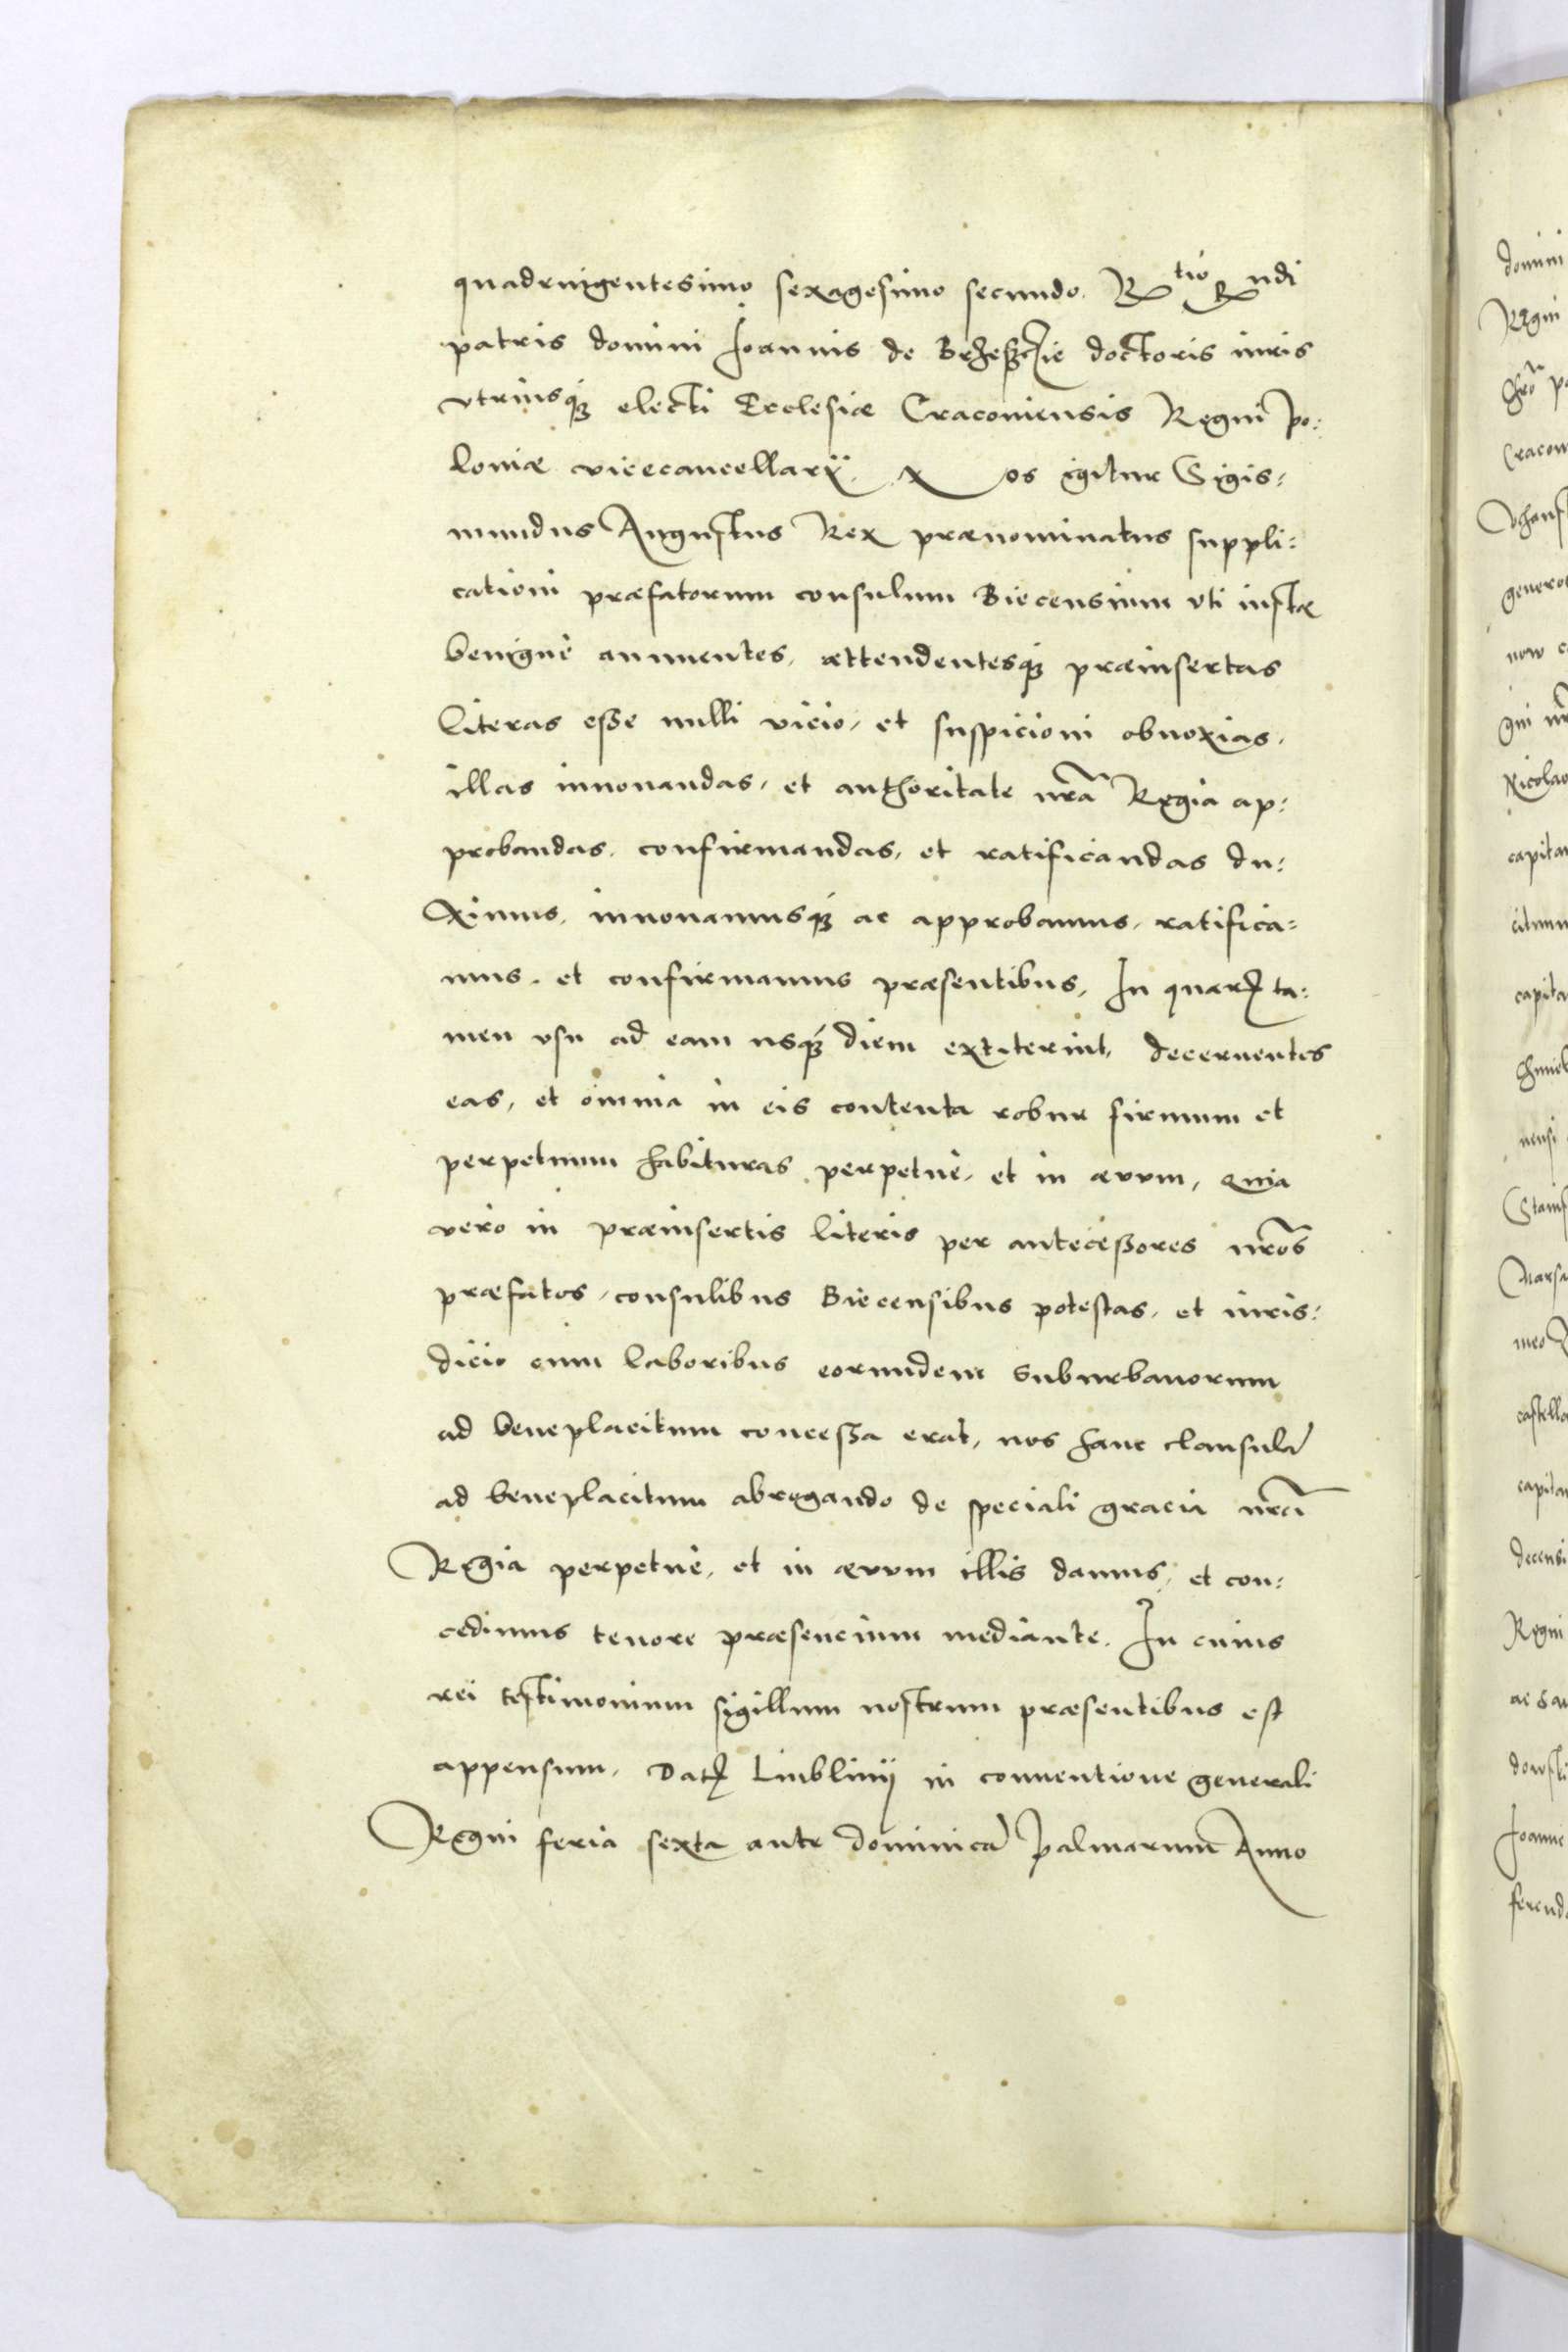 quadringentesimo sexagesimo secundo. R<sup>tio</sup> R<sup>ndi</sup>
patris domini Joannis de Brzeszczie doctoris iuris
vtriusq́ꝫ electi Ecclesiæ Cracouiensis Regni Po:
loniæ vicecancellarÿ. Nos igitur Sigis:
mundus Augustus Rex prænominatus suppli:
cationi præfatorum consulum Biecensium vti iustæ
benignè annuentes, attendentesq́ꝫ præinsertas
literas esse nulli vicio, et suspicioni obnoxias,
illas innouandas, et authoritate nr̃a Regia ap:
probandas, confirmandas, et ratificandas du:
ximus, innouamusq́ꝫ ac approbamus, ratifica:
mus, et confirmamus præsentibus, In quarꝝ ta:
men vsu ad eam usq́ꝫ diem extiterint, decernentes
eas, et omnia in eis contenta robur firmum et
perpetuum habituras perpetuè, et in æuum, Quia
verò in præinsertis literis per antecessores nr̃os
præfatos, consulibus Biecensibus potestas, et iuris:
dicio cum laboribus eorundem suburbanorum
ad beneplacitum concessa erat, nos hanc clausulã
ad beneplacitum abrogando de speciali gracia nr̃a
Regia perpetuè, et in æuum illis damus, et con:
cedimus tenore præsencium mediante. In cuius
rei testimonium sigillum nostrum præsentibus est
appensum. Datꝭ Liublinij in conuentione generali
Regni feria sexta ante dominicã Palmarum Anno
domini
Regni
Cracou
generos
now
gni
Nicolao
capitan
capita
castella
capitan
decensi
Regni
Joanne
ferend